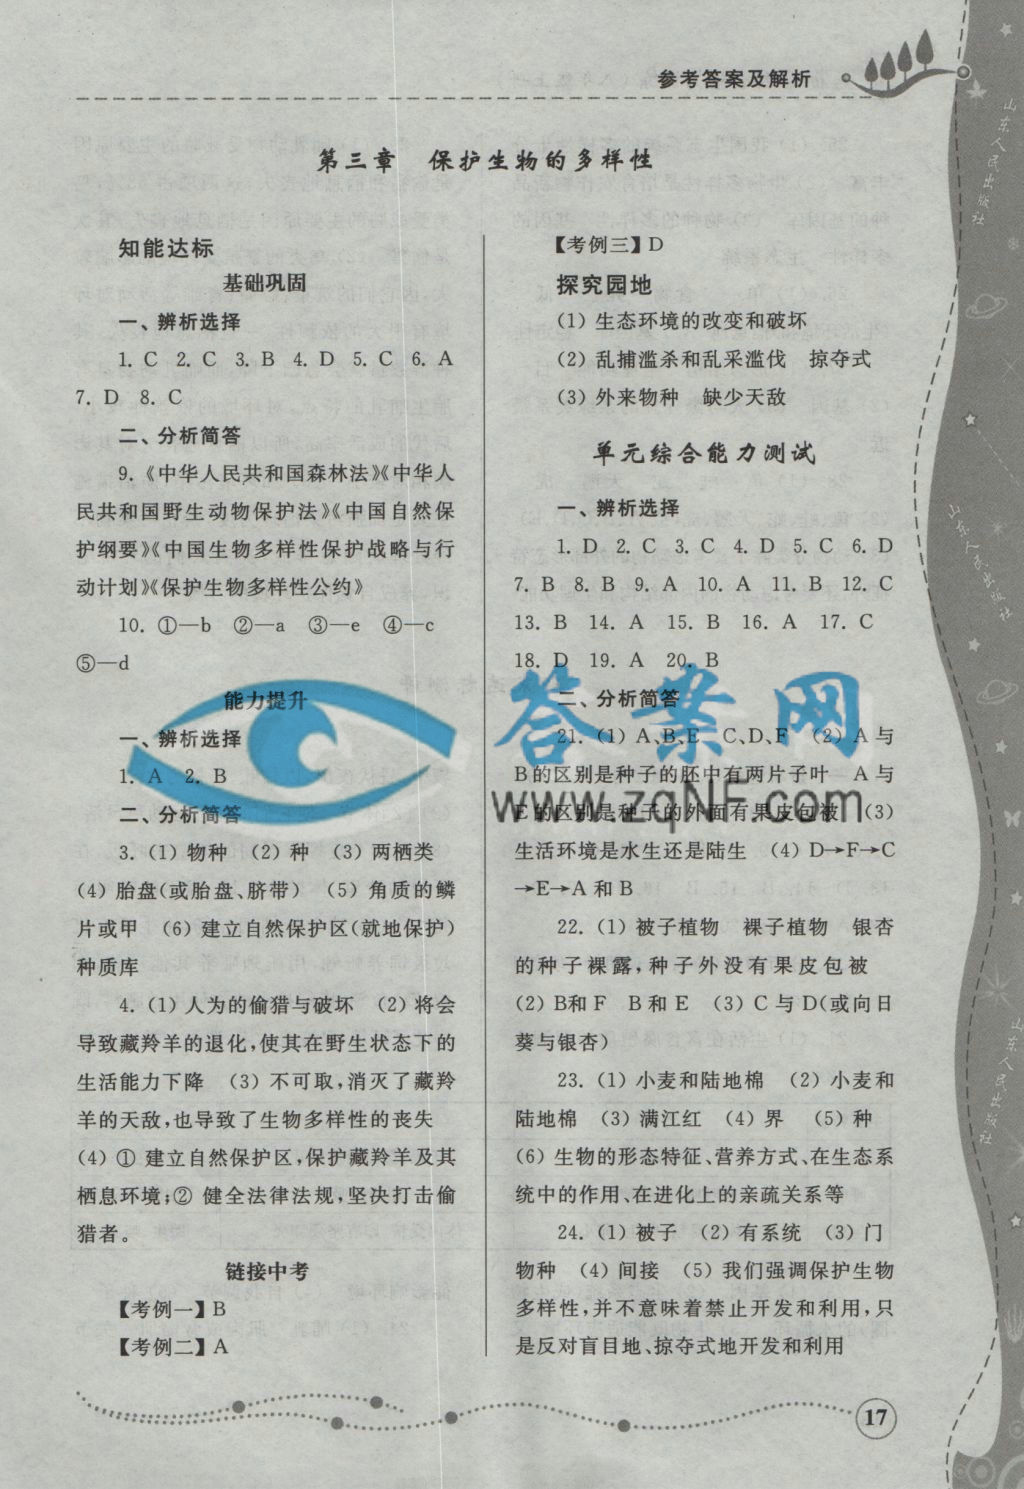 参考答案及解析
第三章 保护生物的多样性
知能达标
基础巩固
一、辨析选择
1. C 2. C 3. B 4. D 5. C 6. A
7. D 8. C
二、分析简答
9.《中华人民共和国森林法》《中华人
民共和国野生动物保护法》《中国自然保
护纲要》《中国生物多样性保护战略与行
动计划》《保护生物多样性公约》
10. ①—b ②—a ③—e ④—c
⑤—d
能力提升
一、辨析选择
1. A 2. B
二、分析简答
3. (1) 物种 (2) 种 (3) 两栖类
(4) 胎盘(或胎盘、脐带) (5) 角质的鳞
片或甲 (6) 建立自然保护区(就地保护)
种质库
4. (1) 人为的偷猎与破坏 (2) 将会
导致藏羚羊的退化,使其在野生状态下的
生活能力下降 (3) 不可取,消灭了藏羚
羊的天敌,也导致了生物多样性的丧失
(4) ① 建立自然保护区,保护藏羚羊及其
栖息环境;② 健全法律法规,坚决打击偷
猎者。
链接中考
【考例一】B
【考例二】A
【考例三】D
探究园地
(1) 生态环境的改变和破坏
(2) 乱捕滥杀和乱采滥伐 掠夺式
(3) 外来物种 缺少天敌
单元综合能力测试
一、辨析选择
1. D 2. C 3. C 4. D 5. C 6. D
7. B 8. B 9. A 10. A 11. B 12. C
13. B 14. A 15. B 16. A 17. C
18. D 19. A 20. B
二、分析简答
21. (1) A、B、E C、D、F (2) A 与
B的区别是种子的胚中有两片子叶 A 与
E 的区别是种子的外面有果皮包被 (3)
生活环境是水生还是陆生 (4) D→F→C
→E→A 和 B
22. (1) 被子植物 裸子植物 银杏
的种子裸露,种子外没有果皮包被
(2) B和 F B和 E (3) C 与 D(或向日
葵与银杏)
23. (1) 小麦和陆地棉 (2) 小麦和
陆地棉 (3) 满江红 (4) 界 (5) 种
(6) 生物的形态特征、营养方式、在生态系
统中的作用、在进化上的亲疏关系等
24. (1) 被子 (2) 有系统 (3) 门
物种 (4) 间接 (5) 我们强调保护生物
多样性,并不意味着禁止开发和利用,只
是反对盲目地、掠夺式地开发和利用
答案网
www.zqNF.com
山东人民出版社
山东人民出版社
山东人民出版社
17